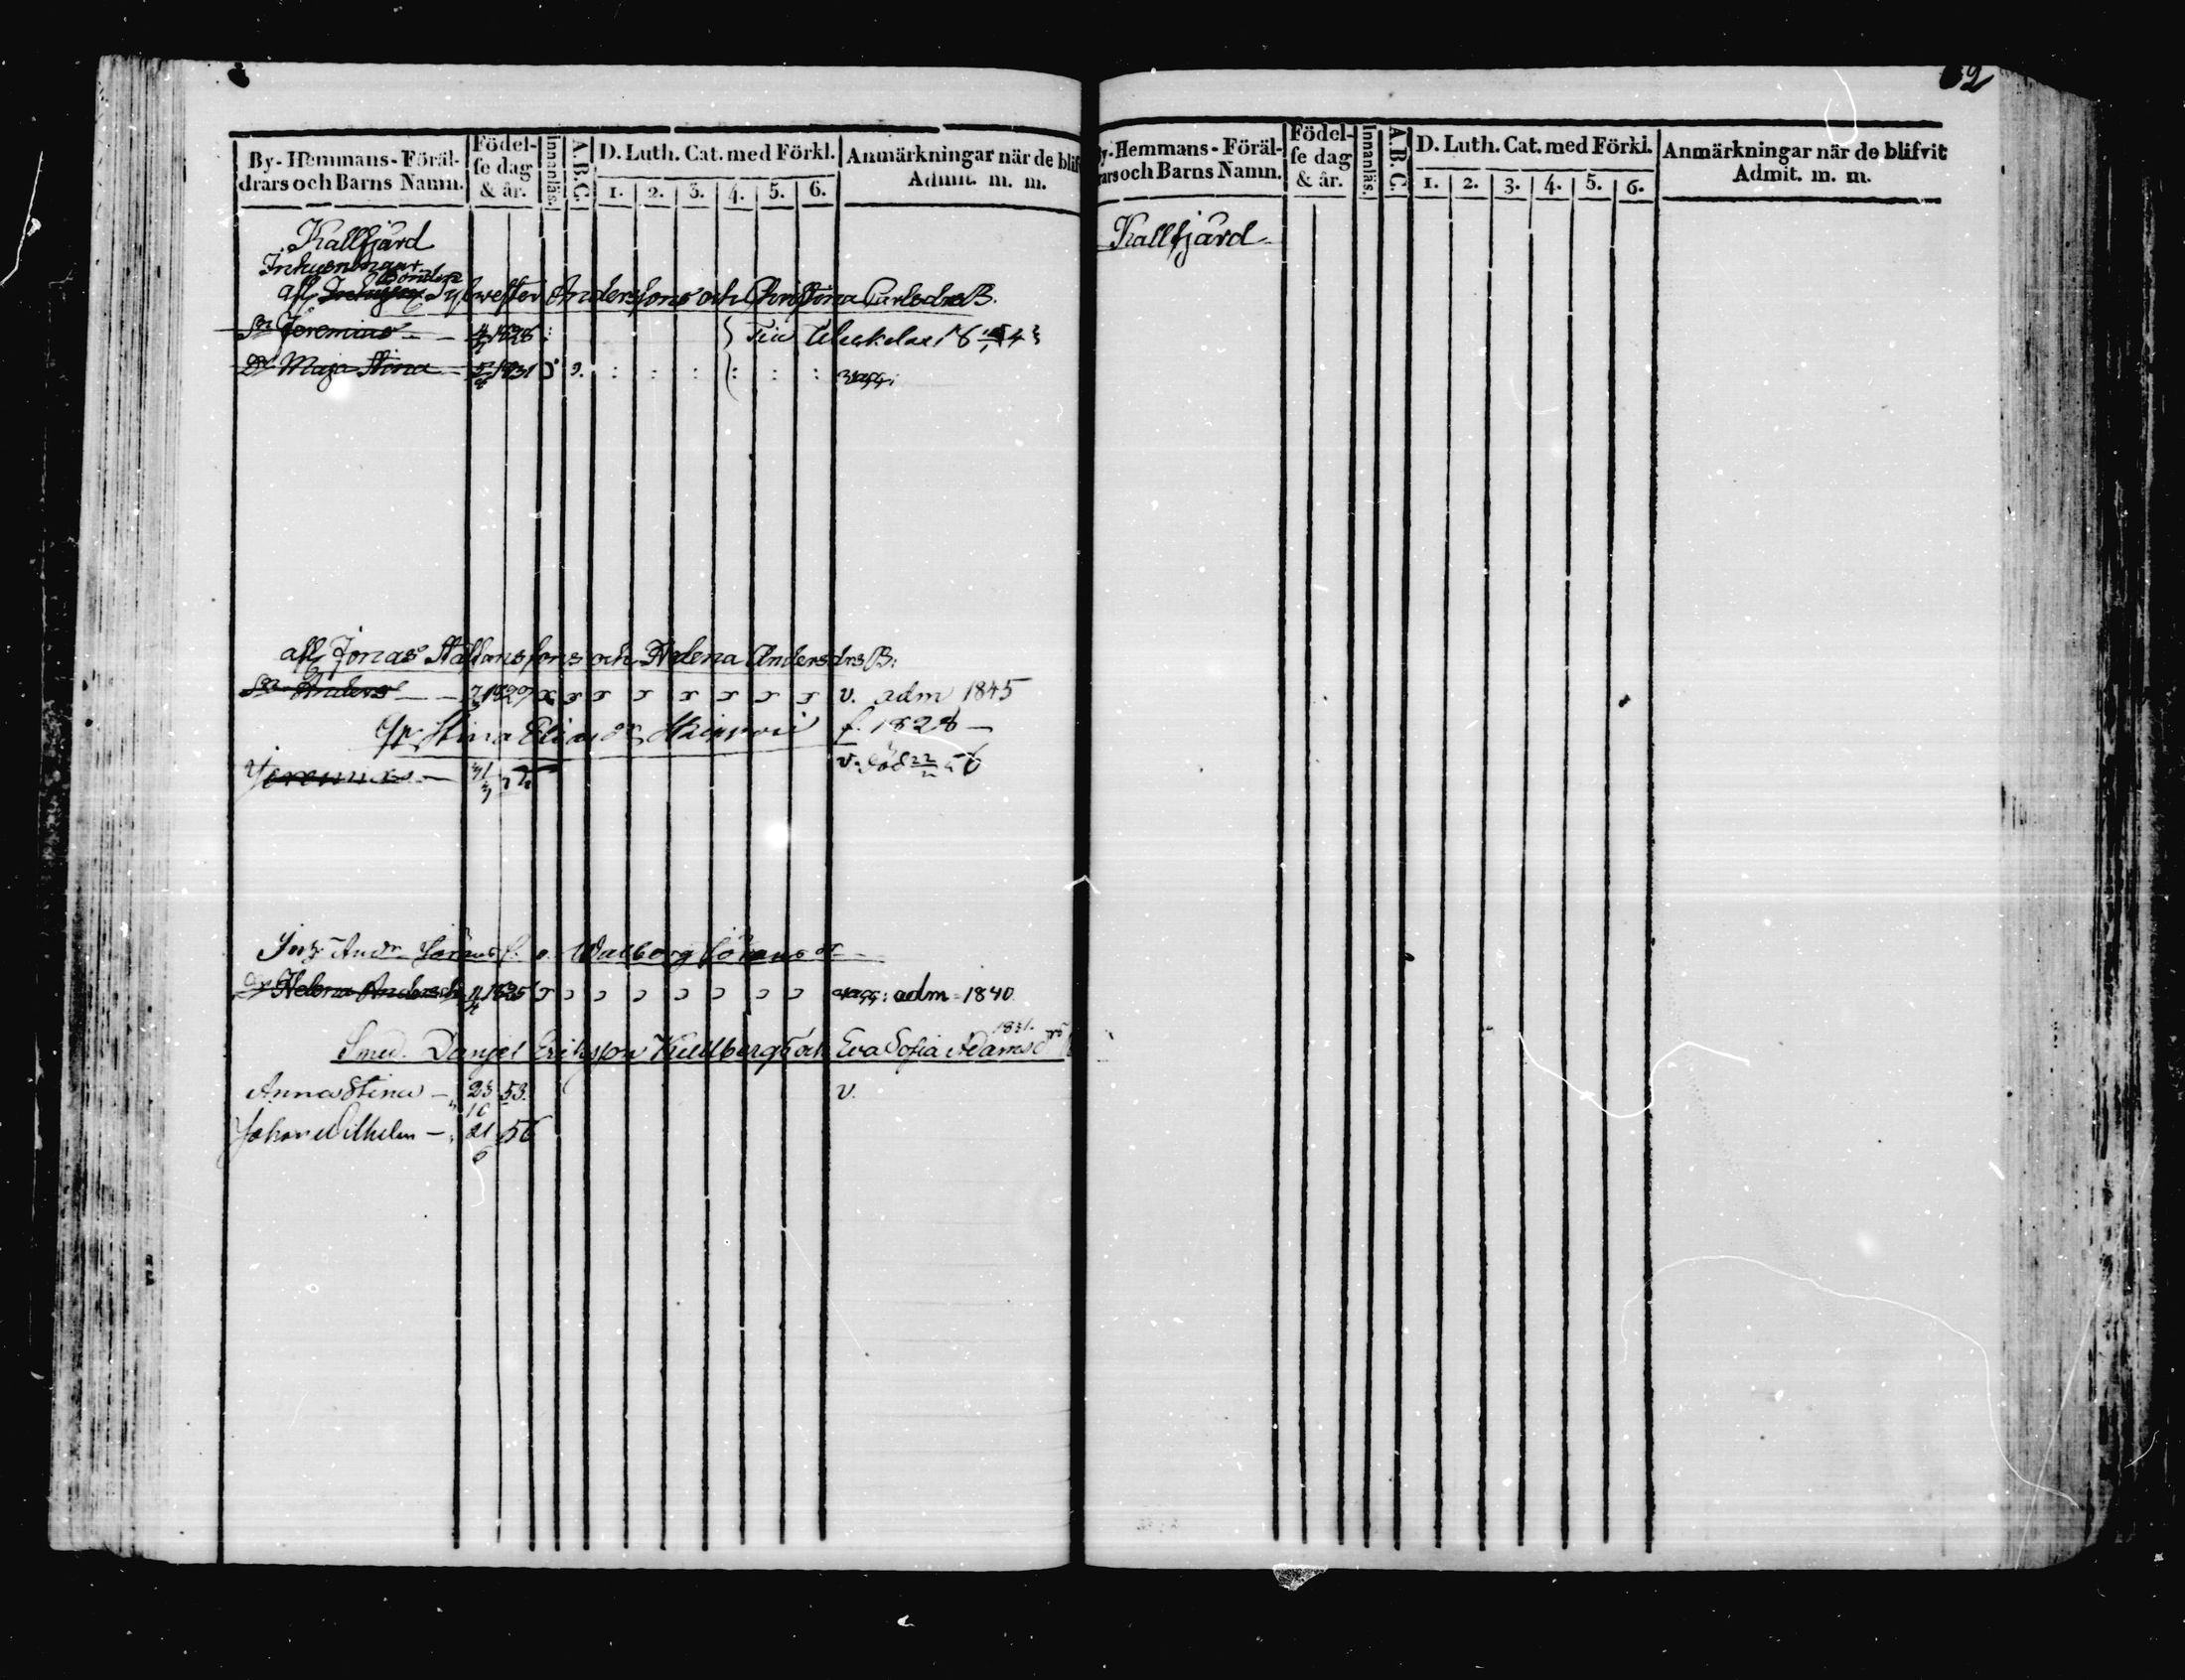 By-Hemmans-Föräl-
drars och Barns Namn.
Födel-
se dag
& år.
Innanläs.
A.B.C.
D. Luth. Cat. med Förkl.
1. 2. 3. 4. 5. 6.
Anmärkningar när de blif
Admit. m. m.
Kallfjärd
Inhysningar
afl Bonden Sylwester Anderssons och Christina Carlsdrs B.
Sn Jeremias 1828
Dr Maja Stina 1831
afl Jonas Staffanssons och Helena Andersdrs B:
Sn Anders 1827 v. adm 1845
Stina Eliasdr f. 1828
Jeremias v. död 22/2 56
Inh. Andr. Walborg
Dr Helena Andersdr 1825 adm 1840
Smed. Daniel Eriksson Kullberg och Eva Sofia Adamsdr 1831.
Anna Stina 23/10 53. v.
Johan Wilhelm 21/6 56
62
y-Hemmans-Föräl-
rars och Barns Namn.
Födel-
se dag
& år.
Innanläs.
A.B.C.
D. Luth. Cat. med Förkl.
1. 2. 3. 4. 5. 6.
Anmärkningar när de blifvit
Admit. m. m.
Kallfjärd